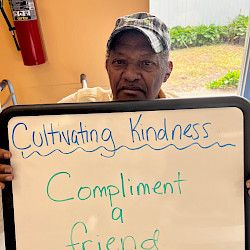 Cultivating Kindness
Compliment
a
friend